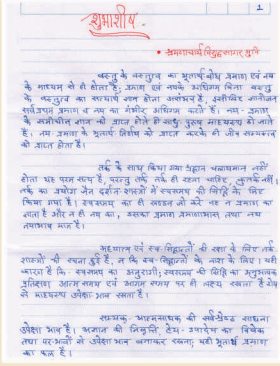 1
शुभाशीष
- श्रमणाचार्य विशुद्धसागर मुनि
वस्तु के वस्तुत्व का भूतार्थ बोध प्रमाण एवं नय
के माध्यम से ही होता है, प्रमाण एवं नयके अधिगम बिना वस्तु
के वस्तुत्व का सत्यार्थ ज्ञान होना असंभव है, इसीलिए ज्ञानीजन
सर्वप्रथम प्रमाण व नय का गंभीर अधिगम करते हैं। नय-प्रमाण
के समीचीन ज्ञान को प्राप्त होते ही साधु पुरुष माध्यस्थ हो जाते
हैं। नय-प्रमाण के भूतार्थ निर्णय को प्राप्त करके ही जीव सम्यक्त्व
को प्राप्त होता है।
तर्क के साथ किया गया श्रद्धान चलायमान नहीं
होता यह परम सत्य है, परन्तु तर्क तर्क ही रहना चाहिए, कुतर्क नहीं।
तर्क का प्रयोग जैन दर्शन शास्त्रों में स्वसमय की सिद्धि के लिए
किया गया है। स्वसमय का ही खण्डन जो करे वह न प्रमाण का
ज्ञाता है और न ही नय का, उसका प्रमाण प्रमाणाभास तथा नय
नयाभास मात्र है।
भव्यात्मा एवं स्व-सिद्धान्तों की रक्षा के लिए तर्क
शास्त्रों की रचना हुई है, न कि स्व-सिद्धान्तों के नाश के लिए। यही
कारण है कि स्वसमय का अनुरागी, स्वसमय की सिद्धि का अनुभावक
प्रतिक्षण आत्म समय एवं आगम समय पर ही लक्ष्य रखता है शेष
से माध्यस्थ्य उपेक्षा-भाव रखता है।
सम्यक्-आत्मसाधक की सर्वश्रेष्ठ साधना
उपेक्षा भाव है। अज्ञान की निवृत्ति, हेय-उपादेय का विवेक
तथा पर-भावों से उपेक्षा भाव बनाकर रखना, यही भूतार्थ प्रमाण
का फल है।